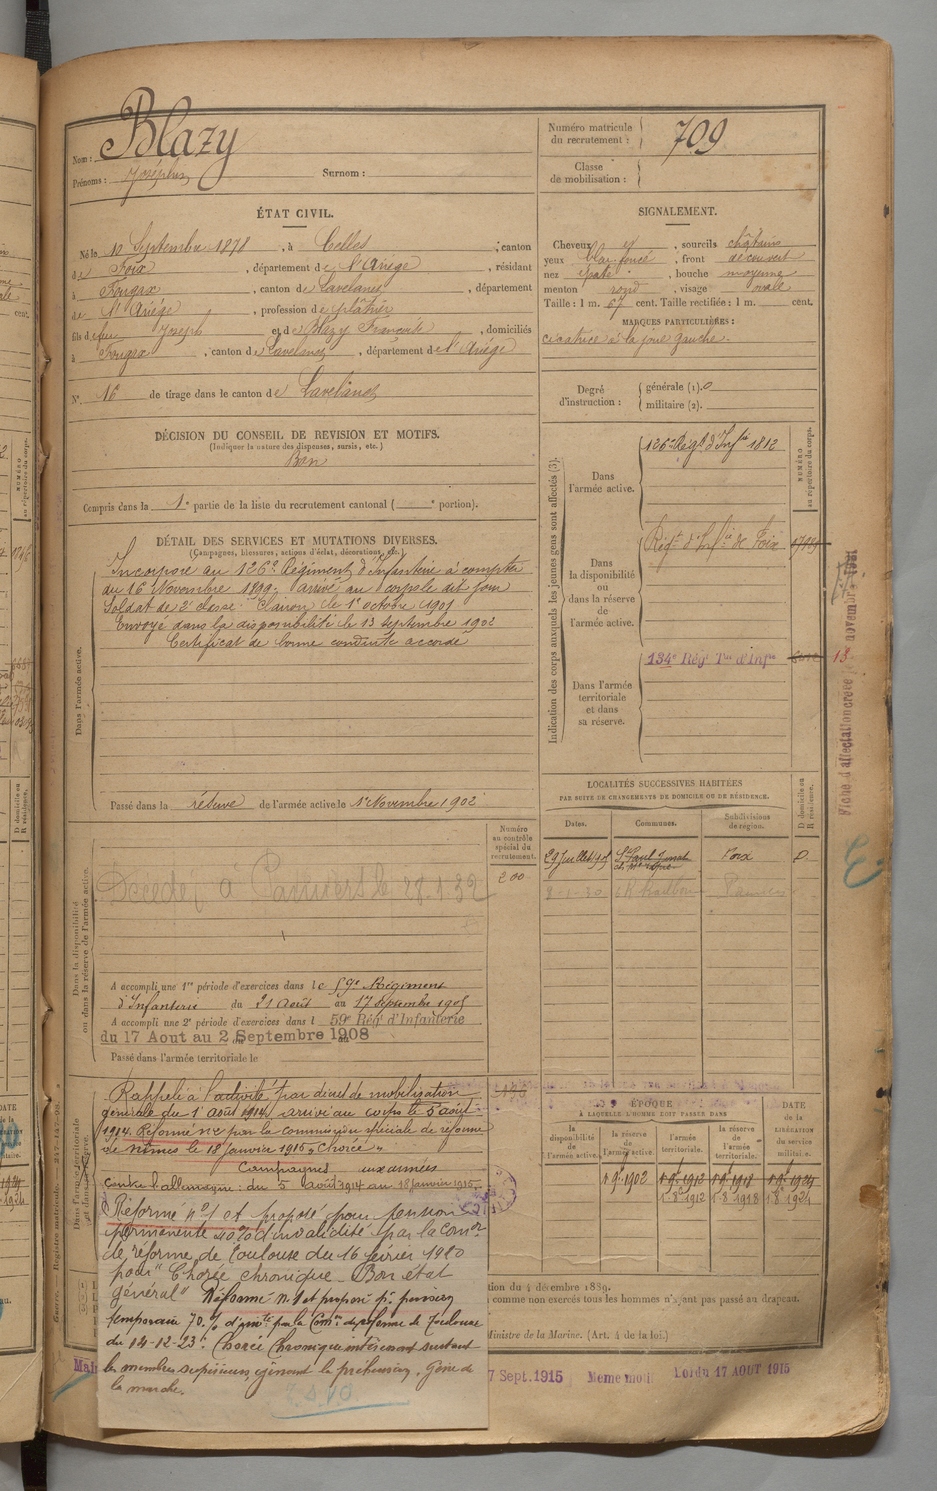 Nom : Blazy
Prénoms : Josephin Surnom :
Numéro matricule du recrutement : 709
Classe de mobilisation :
ÉTAT CIVIL.
Né le 10 Septembre 1878, à Celles, canton
de Foix, département de l'Ariège, résidant
à Fougax, canton de Lavelanet, département
de l'Ariège, profession de plâtrier
fils de feu Joseph et de Blazy Francoise, domiciliés
à Fougax, canton de Lavelanet, département de l'Ariége
N° 16 de tirage dans le canton de Lavelanet
SIGNALEMENT.
Cheveux et, sourcils châtains
yeux, front découvert
nez épaté, bouche moyenne
menton rond, visage ovale
Taille : 1 m. 67 cent. Taille rectifiée : 1 m. cent.
MARQUES PARTICULIÈRES :
cicatrice à la joue gauche.
Degré d'instruction : générale (1). 0
militaire (2).
DÉCISION DU CONSEIL DE REVISION ET MOTIFS.
(Indiquer la nature des dispenses, sursis, etc.)
Bon
Compris dans la 1e partie de la liste du recrutement cantonal ( e portion).
DÉTAIL DES SERVICES ET MUTATIONS DIVERSES.
(Campagnes, blessures, actions d'éclat, décorations, etc.)
Dans l'armée active.
Incorporé au 126e Régiment d'Infanterie à compter
du 16 Novembre 1899. arrivé au corps le dit jour
Soldat de 2e classe. Clairon le 1er octobre 1901
Envoyé dans la disponibilité le 13 septembre 1902
Certificat de bonne conduite accordé
Passé dans la réserve de l'armée active le 1er Novembre 1902
Indication des corps auxquels les jeunes gens sont affectés (3).
NUMÉRO au répertoire du corps.
Dans l'armée active.
126e Régt d'Infie 1812
Dans la disponibilité ou dans la réserve de l'armée active.
Régt d'Infie de Foix
Dans l'armée territoriale et dans sa réserve.
134e Régt Tal d'Infie
LOCALITÉS SUCCESSIVES HABITÉES
PAR SUITE DE CHANGEMENTS DE DOMICILE OU DE RÉSIDENCE.
Dates. Communes. Subdivisions de région. D domicile ou R résidence.
Foix D
Dans la disponibilité ou dans la réserve de l'armée active.
Numéro au contrôle spécial du recrutement.
200
Décédé à Pamiers le 28.1.32
A accompli une 1re période d'exercices dans le 59e Régiment
d'Infanterie du 21 août au 17 septembre 1905
A accompli une 2e période d'exercices dans l 59e Régt d'Infanterie
du 17 Aout au 2 Septembre 1908
Passé dans l'armée territoriale le
Rappelé à l'activité par décret de mobilisation
générale du 1er août 1914. arrivé au corps le 5 août
1914. Réformé n°2 par la commission spéciale de réforme
de Nîmes le 18 Janvier 1915 "Chorée"
Campagnes aux armées
contre l'allemagne : du 5 août 1914 au 18 janvier 1915
Réformé n°1 et proposé pour pension
permanente 40% d'invalidité par la Comon
de réforme de Toulouse du 16 février 1920
pour "Chorée chronique - Bon état
général" Réformé n°1 et proposé pr pension
temporaire 70% d'invté par la Comon de réforme de Toulouse
du 14-12-23 : Chorée Chronique intéressant surtout
les membres supérieurs, gênant la préhension. Gêne de
la marche.
ÉPOQUE
À LAQUELLE L'HOMME DOIT PASSER DANS
la disponibilité de l'armée active.
la réserve de l'armée active.
l'armée territoriale.
la réserve de l'armée territoriale.
DATE de la LIBÉRATION du service militaire.
1.9.1902 1.9.1912 1.9.1918 1.9.1924
1.8.1912 1.8.1918 1.8.1924
tion du 4 décembre 1889.
comme non exercés tous les hommes n'ayant pas passé au drapeau.
Ministre de la Marine. (Art. 4 de la loi.)
7 Sept. 1915 Meme motif Loi du 17 AOUT 1915